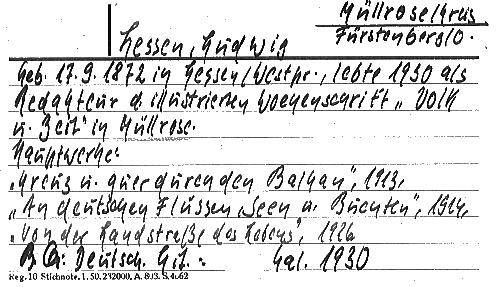 Müllrose/Kreis
Fürstenberg/O.
Lessen, Ludwig
Geb. 17.9.1872 in Lessen/Westpr., lebte 1930 als
Redakteur d illustrierten Wochenschrift „Volk
u. Zeit" in Müllrose.
Hauptwerke:
„Kreuz u. quer durch den Balkan", 1913,
„An deutschen Flüssen, Seen u. Buchten", 1914,
„Von der Landstraße des Lebens", 1926
Deutsch. Lit.-Kal. 1930
Reg. 10 Stichnote. 1. 50. 232000. A. 803. S. 4062